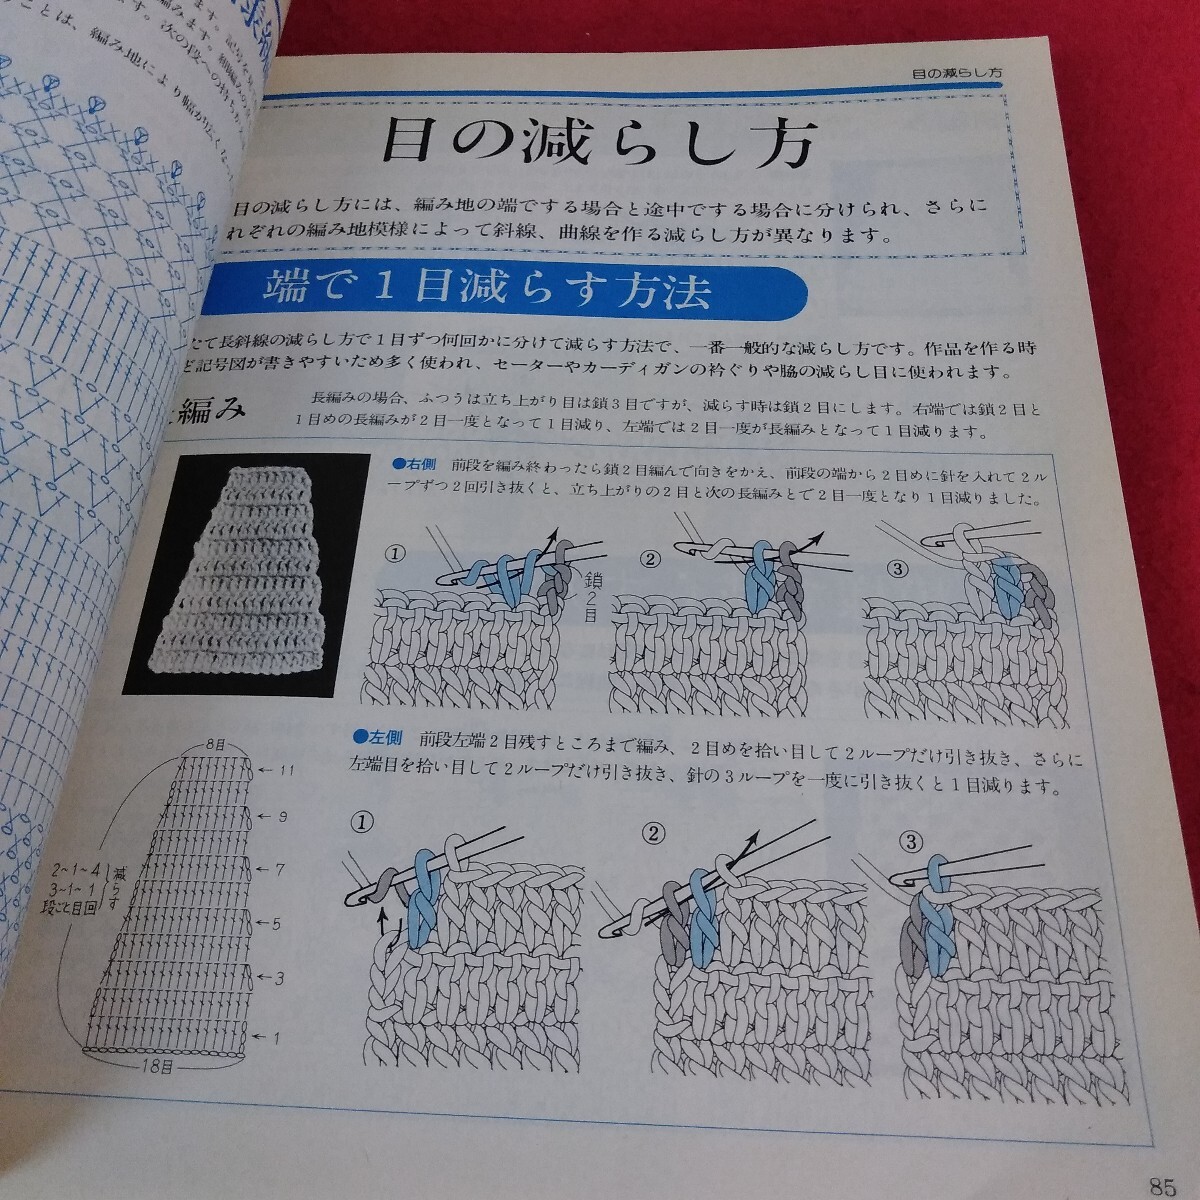 目の減らし方
目の減らし方
目の減らし方には、編み地の端でする場合と途中でする場合に分けられ、さらに
れぞれの編み地模様によって斜線、曲線を作る減らし方が異なります。
端で1目減らす方法
たて長斜線の減らし方で1目ずつ何回かに分けて減らす方法で、一番一般的な減らし方です。作品を作る時
ど記号図が書きやすいため多く使われ、セーターやカーディガンの衿ぐりや脇の減らし目に使われます。
編み
長編みの場合、ふつうは立ち上がり目は鎖3目ですが、減らす時は鎖2目にします。右端では鎖2目と
1目めの長編みが2目一度となって1目減り、左端では2目一度が長編みとなって1目減ります。
●右側 前段を編み終わったら鎖2目編んで向きをかえ、前段の端から2目めに針を入れて2ル
ープずつ2回引き抜くと、立ち上がりの2目と次の長編みとで2目一度となり1目減りました。
①
鎖2目
②
③
●左側 前段左端2目残すところまで編み、2目めを拾い目して2ループだけ引き抜き、さらに
左端目を拾い目して2ループだけ引き抜き、針の3ループを一度に引き抜くと1目減ります。
①
②
③
8目
←11
←9
←7
←5
←3
←1
2~1~4
3~1~1
段ごと目回
減らす
18目
85